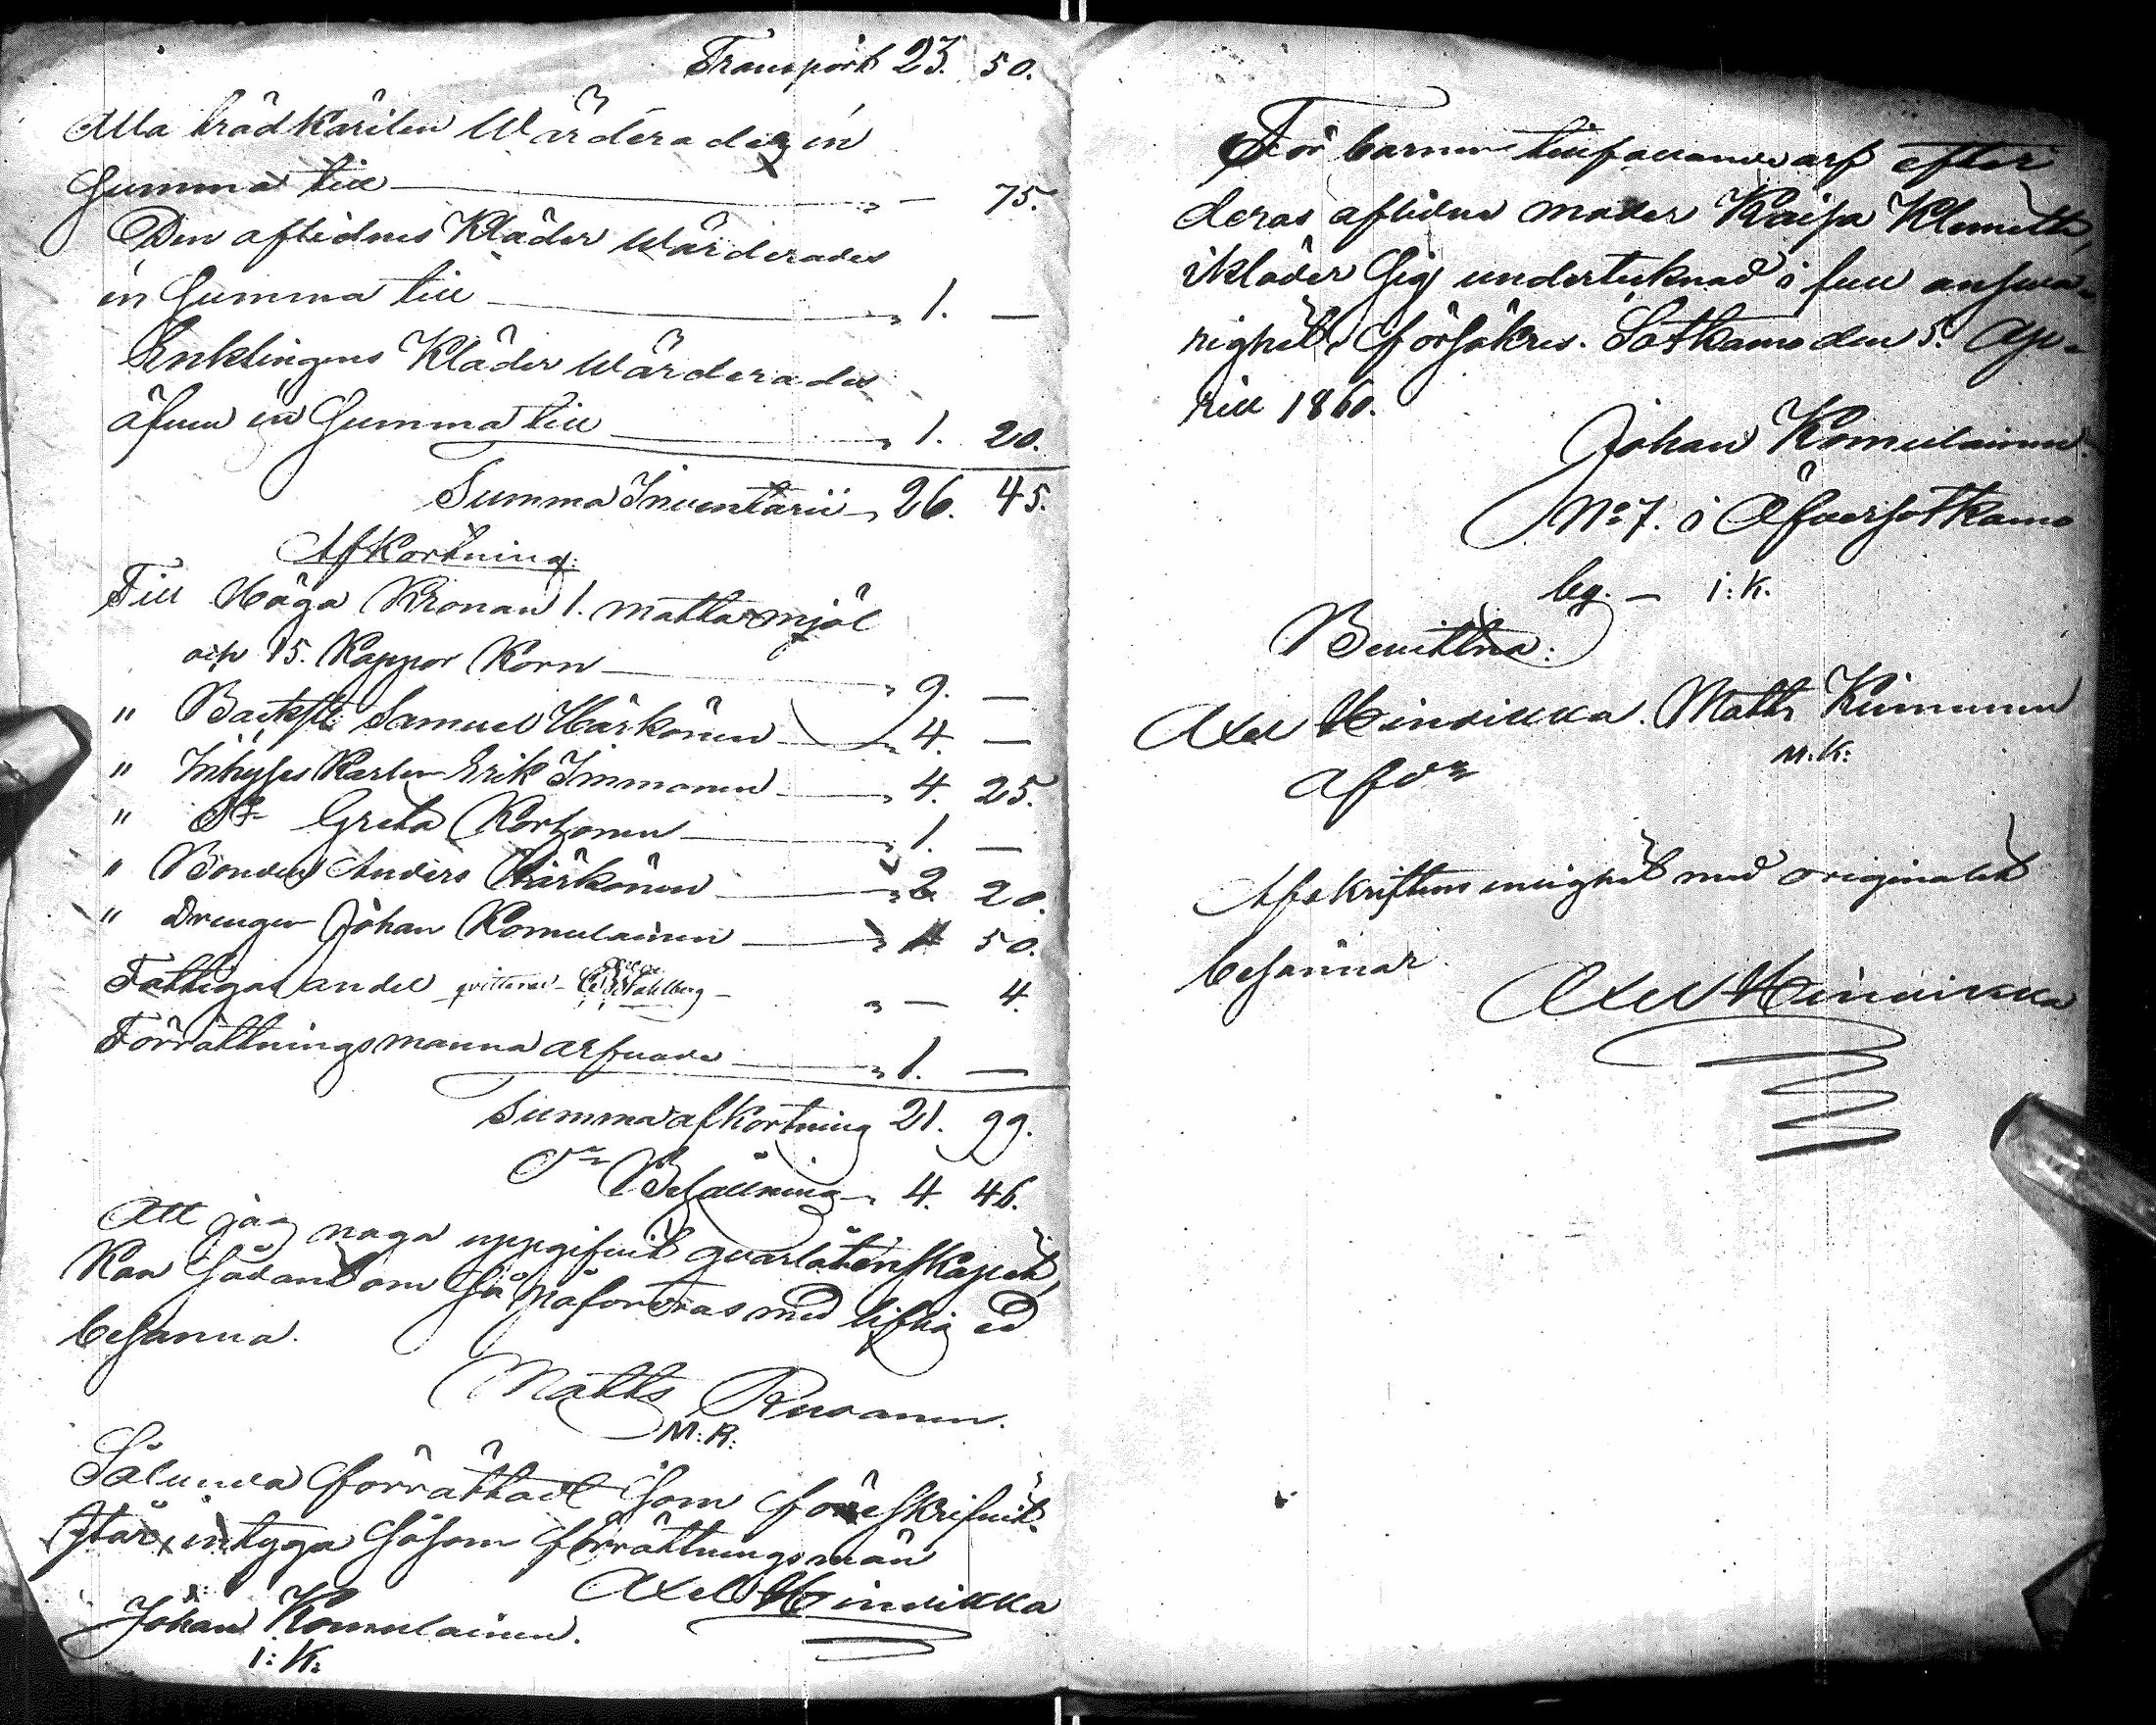 Transport 23. 50.
Alla trädkärilen Wärderades in
Summa till — „ — 75.
Den aflidnes Kläder Wärderades
in Summa till — „ 1. —
Enklingens Kläder Wärderades
äfven in Summa till — „ 1. 20.
Summa Inventarii „ 26. 45.
Afkortning:
Till Höga Kronan 1. matta mjöl
och 15. Kappor Korn — „ 9. —
" Backst: Samuel Härkönen — „ 4. —
" Inhyses Karlen Erik Immonen — „ 4. 25.
" Greta Korhonen — „ 1. —
" Bonden Anders Härkönen — „ 2. 20.
" Drengen Johan Komulainen — „ 50.
Fattigas andel qvitteras Wahlberg — „ — 4.
Förrättningsmanna arfvode — „ 1. —
Summa afkortning 21. 99.
Behållning „ 4. 46.
Att jag noga uppgifvit qvarlåtenskapet,
Kan sådant om så påfordras med liflig ed
besanna.
Matts Rusanen.
M: R:
Sålunda förrättadt som föreskrifvit
står, intyga såsom förrättningsmän
Axel Hindikka
Johan Komulainen.
I: K:
För barnens tillfallande arf efter
deras aflidna moder Kaisa Klemetti,
ikläder sig undertecknad i full answa-
righet, försäkres. Sotkamo den 5. Ap-
rill 1860.
Johan Komulainen.
No 7. i Öfversotkamo
by. — I: K.
Bevittna:
Axel Hindikka. Matts Kinnunen
M: K:
Afskriftens enighet med originalet
besannar.
Axel Hindikka